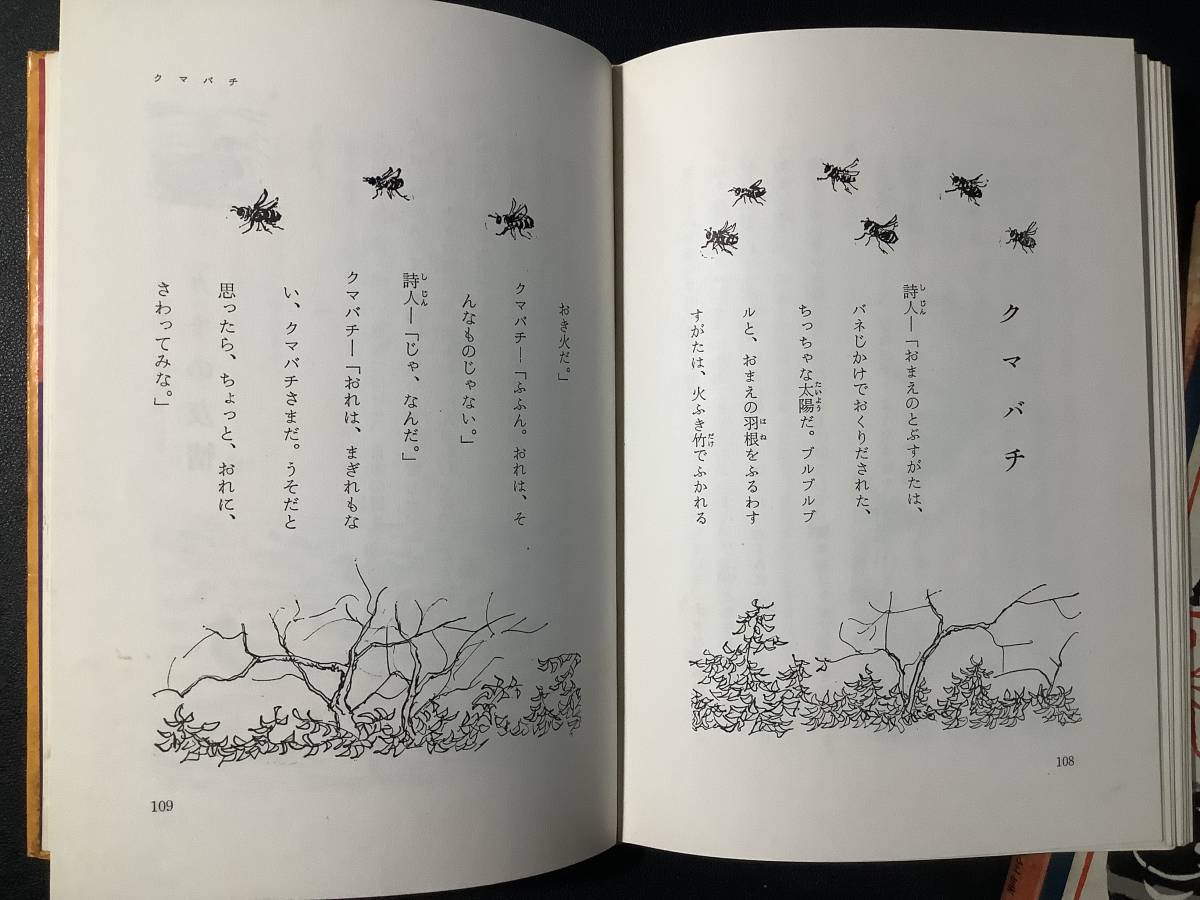 クマバチ
詩人―「おまえのとぶすがたは、
バネじかけでおくりだされた、
ちっちゃな太陽だ。ブルブルブ
ルと、おまえの羽根をふるわす
すがたは、火ふき竹でふかれる
108
クマバチ
おき火だ。」
クマバチ―「ふふん。おれは、そ
んなものじゃない。」
詩人―「じゃ、なんだ。」
クマバチ―「おれは、まぎれもな
い、クマバチさまだ。うそだと
思ったら、ちょっと、おれに、
さわってみな。」
109